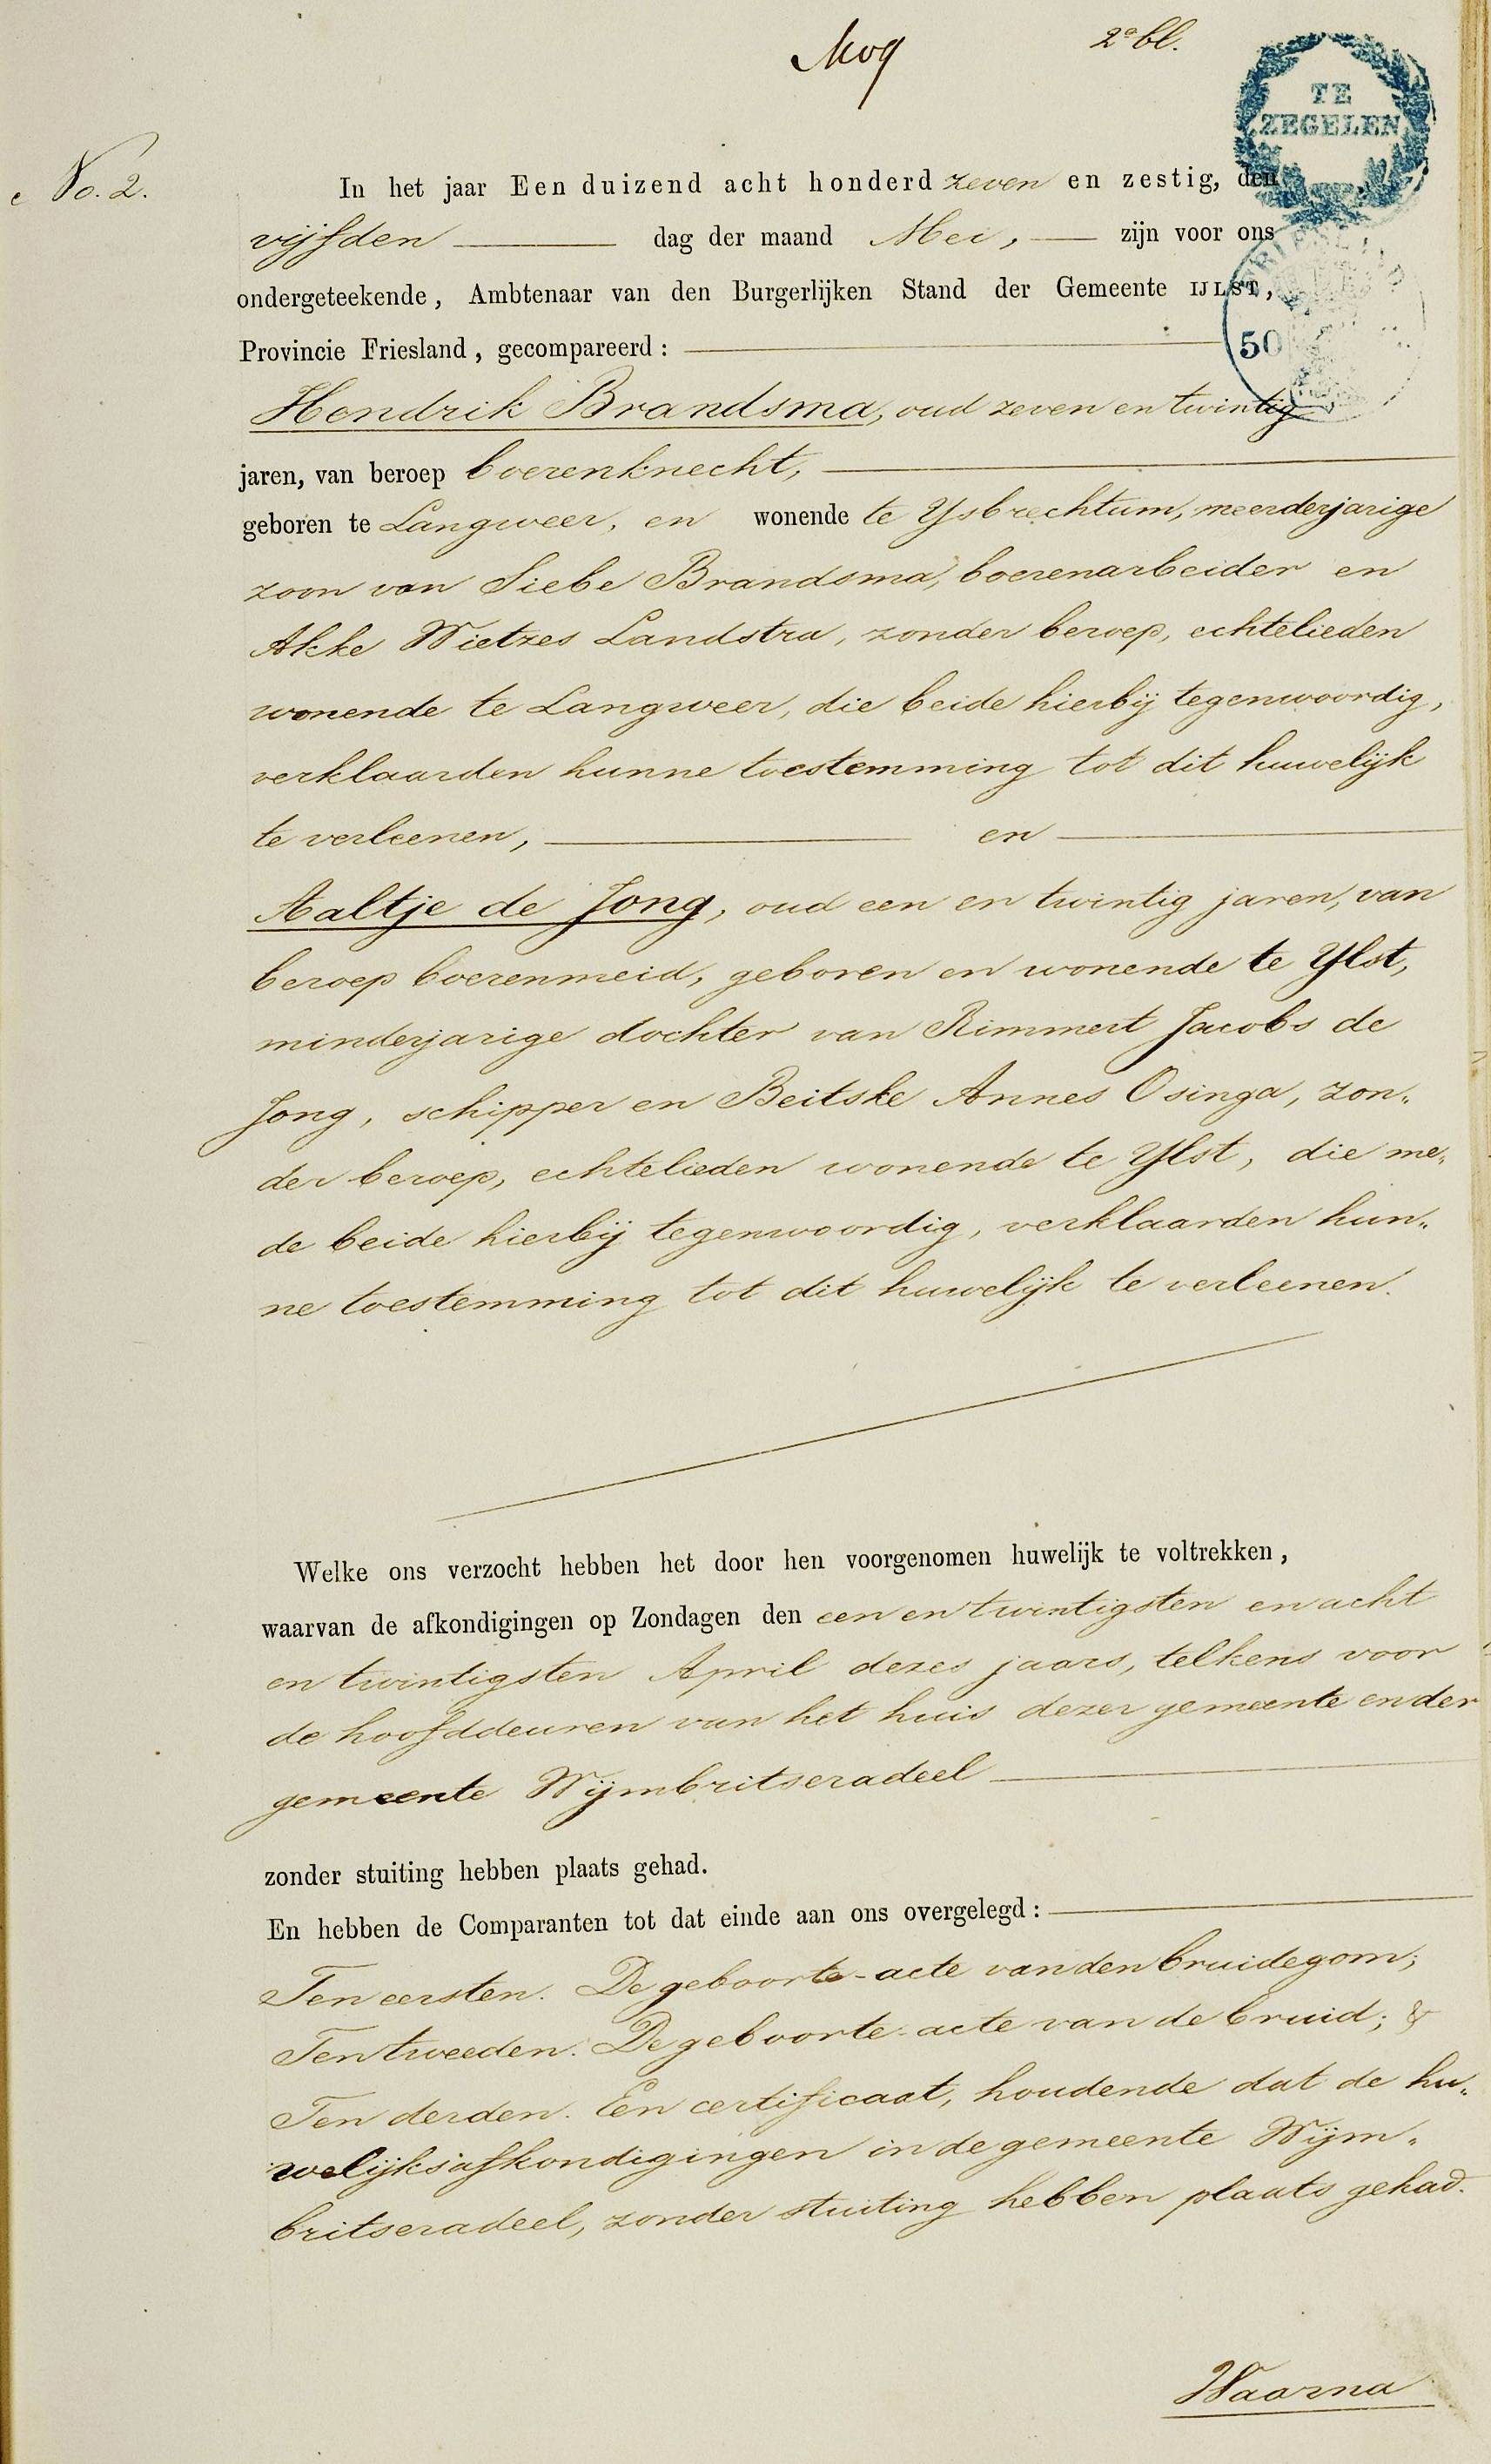 2e bl.
TE
ZEGELEN
No. 2.
In het jaar Een duizend acht honderd zeven en zestig, den
vijfden dag der maand Mei, zijn voor ons
ondergeteekende, Ambtenaar van den Burgerlijken Stand der Gemeente IJLST,
Provincie Friesland, gecompareerd:
50
Hendrik Brandsma, oud zeven en twintig
jaren, van beroep boerenknecht,
geboren te Langweer, en wonende te Ysbrechtum, meerderjarige
zoon van Siebe Brandsma, boerenarbeider en
Akke Wietzes Landstra, zonder beroep, echtelieden
wonende te Langweer, die beide hierbij tegenwoordig,
verklaarden hunne toestemming tot dit huwelijk
te verleenen, en
Aaltje de Jong, oud een en twintig jaren, van
beroep boerenmeid, geboren en wonende te Ylst,
minderjarige dochter van Rimmert Jacobs de
Jong, schipper en Beitske Annes Osinga, zon„
der beroep, echtelieden wonende te Ylst, die me„
de beide hierbij tegenwoordig, verklaarden hun„
ne toestemming tot dit huwelijk te verleenen.
Welke ons verzocht hebben het door hen voorgenomen huwelijk te voltrekken,
waarvan de afkondigingen op Zondagen den een en twintigsten en acht
en twintigsten April dezes jaars, telkens voor
de hoofddeuren van het huis dezer gemeente en der
gemeente Wijmbritseradeel
zonder stuiting hebben plaats gehad.
En hebben de Comparanten tot dat einde aan ons overgelegd:
Ten eersten. De geboorte-acte van den bruidegom;
Ten tweeden. De geboorte-acte van de bruid; &
Ten derden. Een certificaat, houdende dat de hu„
welijksafkondigingen in de gemeente Wijm„
britseradeel, zonder stuiting hebben plaats gehad.
Waarna